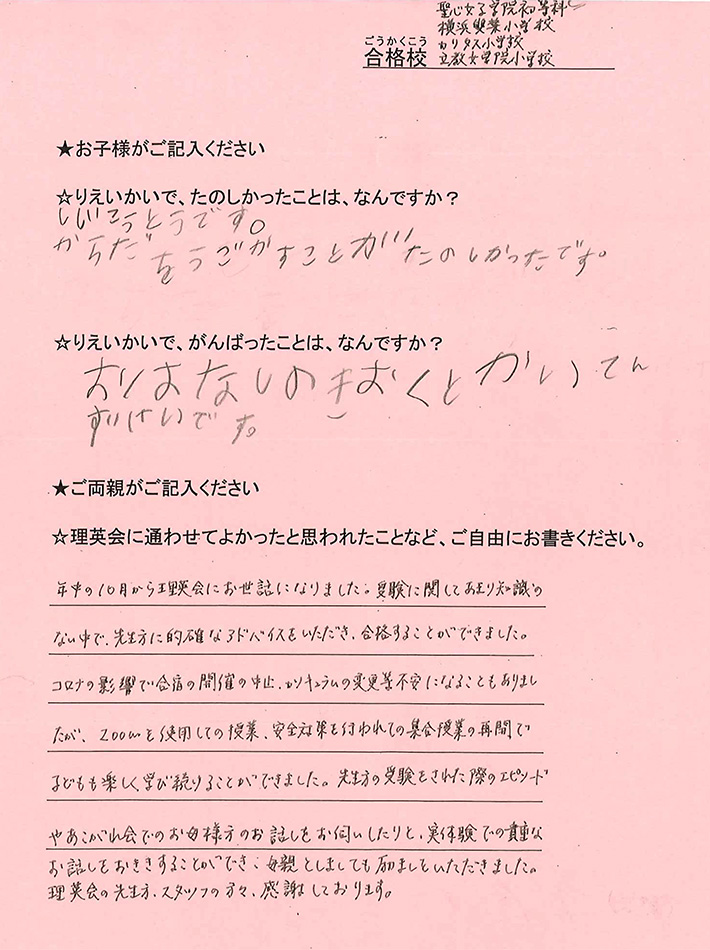 聖心女子学院初等科
横浜雙葉小学校
カリタス小学校
ごうかくこう
合格校 立教女学院小学校
★お子様がご記入ください
☆りえいかいで、たのしかったことは、なんですか？
しじこうどうです。
からだをうごかすことがたのしかったです。
☆りえいかいで、がんばったことは、なんですか？
おはなしのきおくとかいてん
ずけいです。
★ご両親がご記入ください
☆理英会に通わせてよかったと思われたことなど、ご自由にお書きください。
年中の10月から理英会にお世話になりました。受験に関してあまり知識の
ない中で、先生方に的確なアドバイスをいただき、合格することができました。
コロナの影響で合宿の開催の中止、カリキュラムの変更等不安になることもありまし
たが、zoomを使用しての授業、安全対策を行われての集合授業の再開で
子どもも楽しく学び続けることができました。先生方の受験をされた際のエピソード
やあこがれ会でのお母様方のお話しをお伺いしたりと、実体験での貴重な
お話しをおききすることができ、母親としましても励ましをいただきました。
理英会の先生方、スタッフの方々、感謝しております。